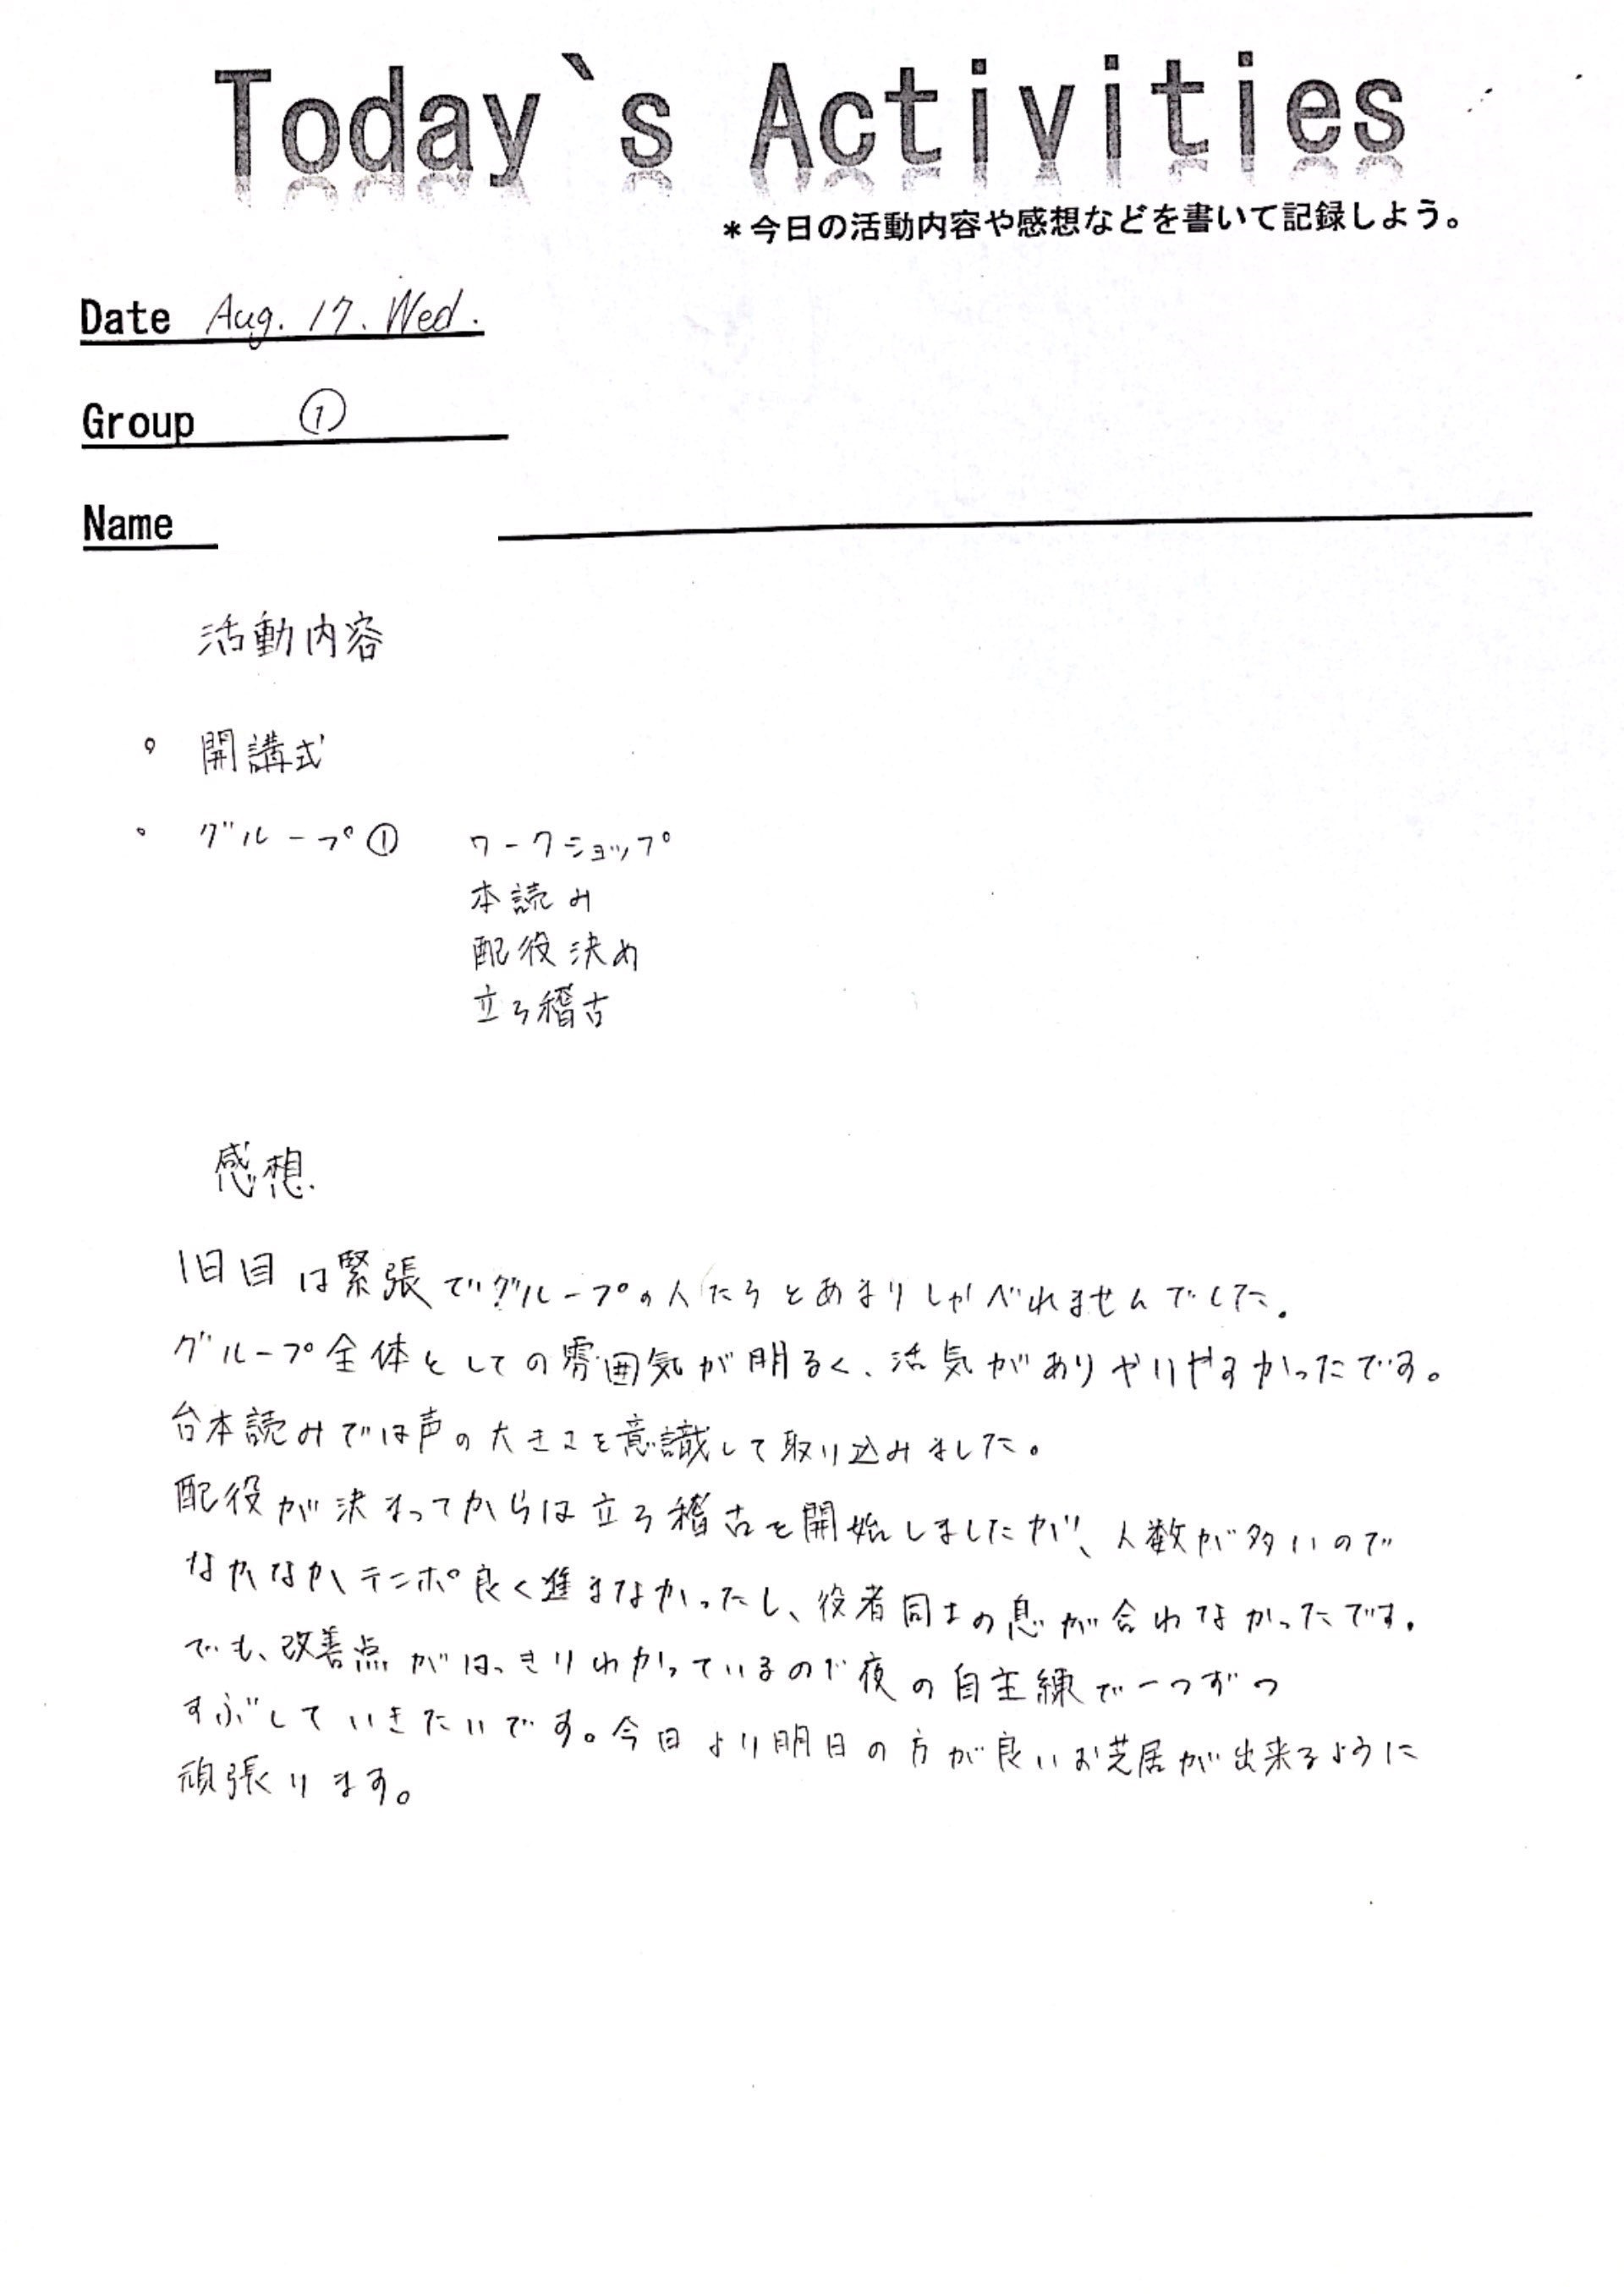 Today`s Activities
*今日の活動内容や感想などを書いて記録しよう。
Date Aug. 17. Wed.
Group ①
Name
活動内容
° 開講式
° グループ① ワークショップ
本読み
配役決め
立ち稽古
感想.
1日目は緊張でグループの人たちとあまりしゃべれませんでした。
グループ全体としての雰囲気が明るく、活気がありやりやすかったです。
台本読みでは声の大きさを意識して取り込みました。
配役が決まってからは立ち稽古を開始しましたが、人数が多いので
なかなかテンポ良く進まなかったし、役者同士の息が合わなかったです。
でも、改善点がはっきりわかっているので夜の自主練で一つずつ
すぶしていきたいです。今日より明日の方が良いお芝居が出来るように
頑張ります。